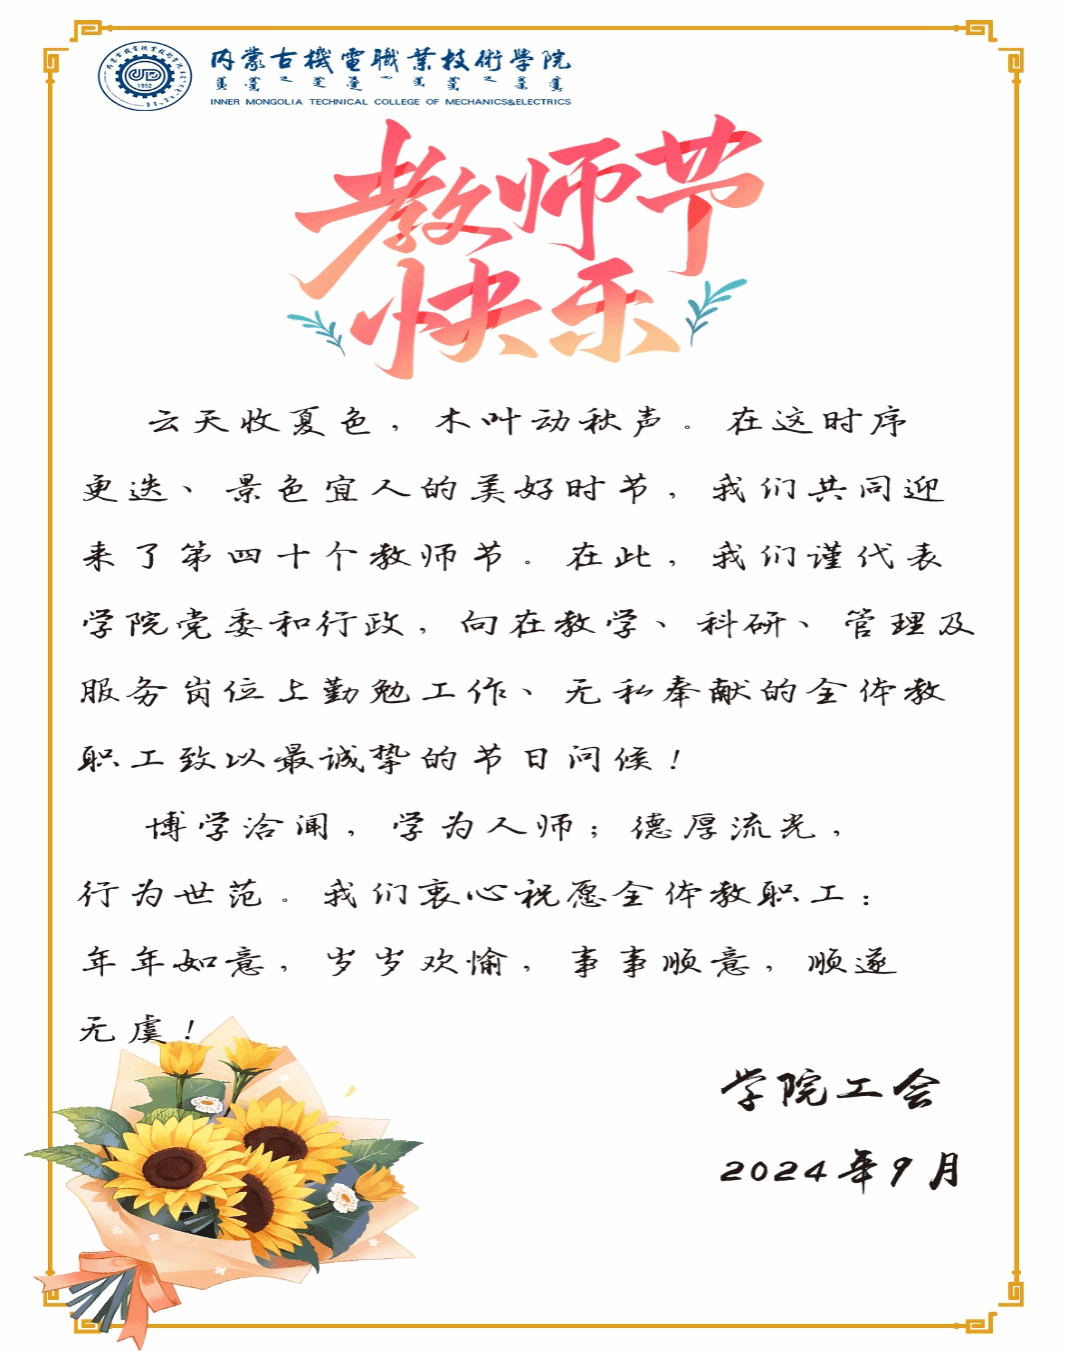 内蒙古機電職業技術學院
INNER MONGOLIA TECHNICAL COLLEGE OF MECHANICS&ELECTRICS
1952
教师节
快乐
云天收夏色，木叶动秋声。在这时序
更迭、景色宜人的美好时节，我们共同迎
来了第四十个教师节。在此，我们谨代表
学院党委和行政，向在教学、科研、管理及
服务岗位上勤勉工作、无私奉献的全体教
职工致以最诚挚的节日问候！
博学洽闻，学为人师；德厚流光，
行为世范。我们衷心祝愿全体教职工：
年年如意，岁岁欢愉，事事顺意，顺遂
无虞！
学院工会
2024年9月